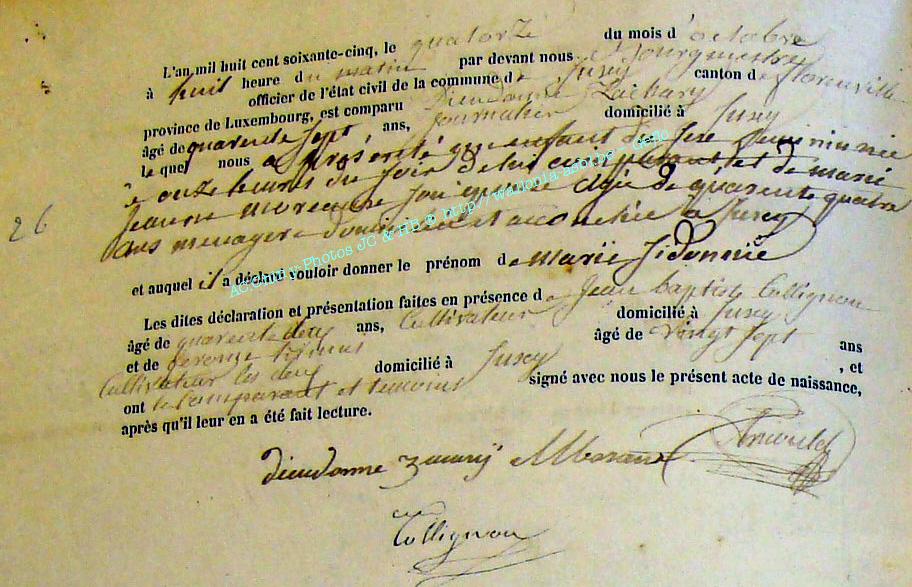 L'an mil huit cent soixante-cinq, le quatorze du mois d'octobre
à huit heure du matin par devant nous Bourgmestre
officier de l'état civil de la commune de Jusey canton de florenville
province de Luxembourg, est comparu Dieudonné Zachary
âgé de quarente sept ans, journalier domicilié à Jusey
lequel nous a présenté un enfant du sexe
à onze heures du jour de lui comparant et de marie
jeanne moreaux son épouse agée de quarente quatre
ans menagere domiciliée et accouchée à Jusey
26
et auquel il a déclaré vouloir donner le prénom de Marie Sidonnie
Les dites déclaration et présentation faites en présence de Jean baptiste Collignon
âgé de quarente deux ans, Cultivateur domicilié à Jusey
et de gerome âgé de vingt sept ans
Cultivateur les deux domicilié à Jusey , et
ont le comparant et temoins signé avec nous le présent acte de naissance,
après qu'il leur en a été fait lecture.
dieudonne
Collignon
Actes and Photos JC & HB © http://wallonia-asbl.be - Genfo